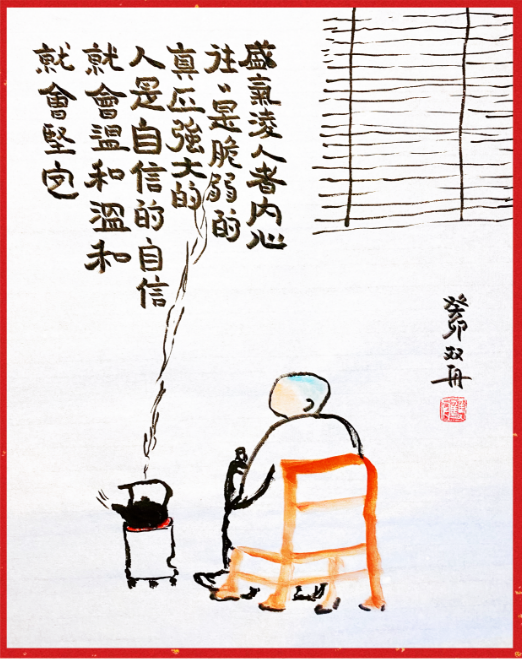 盛氣凌人者内心
往〻是脆弱的
真正強大的
人是自信的自信
就會溫和溫和
就會堅定
癸卯双舟